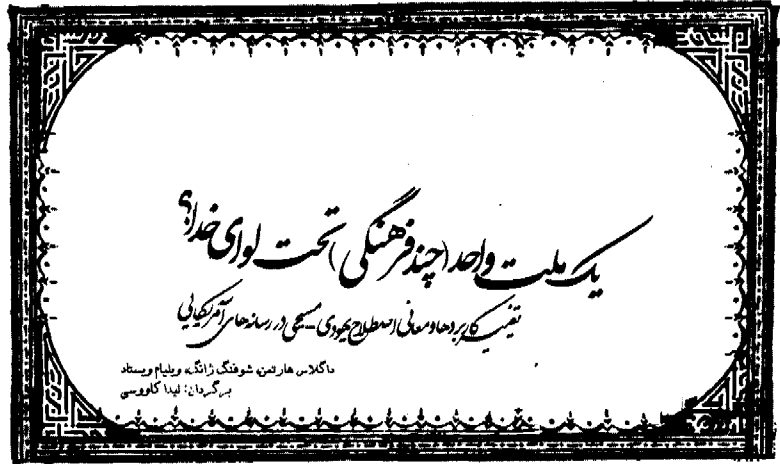 یک ملت واحد (چند فرهنگی) تحت لوای خدا؟
تغییر کاربردها و معانی اصطلاح یهودی - مسیحی در رسانه‌های آمریکایی
داگلاس هارتمن، شوفنگ ژانگ، ویلیام ویستاد
برگردان: لیدا کاووسی